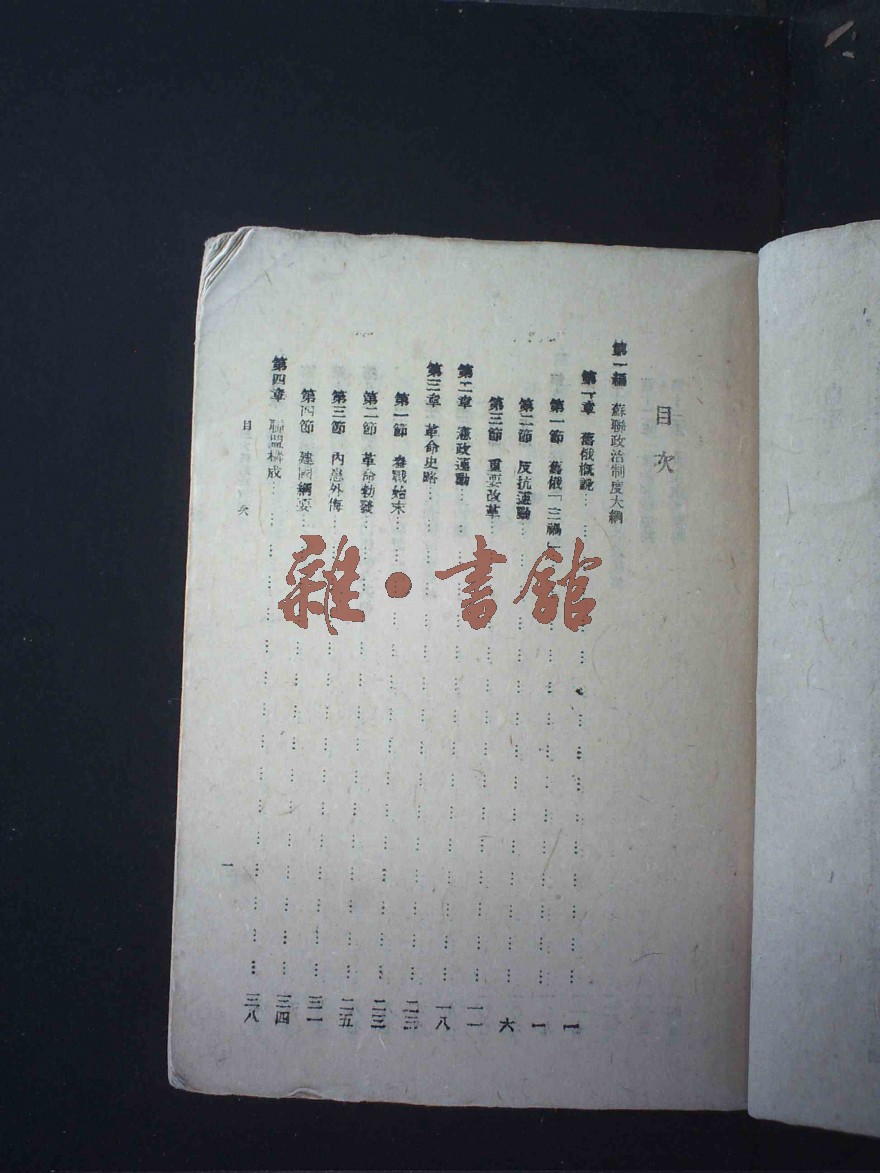 目次
第一編 蘇聯政治制度大綱
第一章 舊俄概說……一
第一節 舊俄「三禍」……一
第二節 反抗運動……六
第三節 重要改革……一一
第二章 憲政運動……一八
第三章 革命史略……二三
第一節 參戰始末……二三
第二節 革命勃發……二五
第三節 內患外侮……三一
第四節 建國綱要……三四
第四章 聯盟構成……三八
目次
一
雜·書館